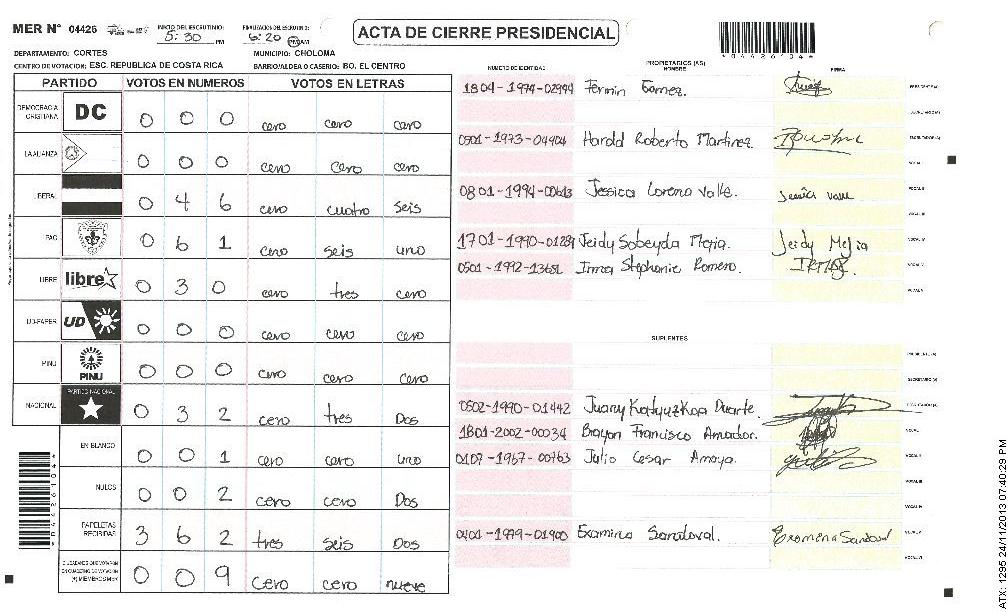 MER N° 04426 INICIO DEL ESCRUTINIO: 5:30 PM FINALIZACION DEL ESCRUTINIO: 6:20 PM
ACTA DE CIERRE PRESIDENCIAL
*04426104*
DEPARTAMENTO: CORTES MUNICIPIO: CHOLOMA
CENTRO DE VOTACION: ESC. REPUBLICA DE COSTA RICA BARRIO/ALDEA O CASERIO: BO. EL CENTRO
PARTIDO VOTOS EN NUMEROS VOTOS EN LETRAS
DEMOCRACIA CRISTIANA DC 0 0 0 cero cero cero
LA ALIANZA 0 0 0 cero cero cero
LIBERAL 0 4 6 cero cuatro seis
PAC 0 6 1 cero seis uno
LIBRE libre 0 3 0 cero tres cero
UD-FAPER UD 0 0 0 cero cero cero
PINU PINU 0 0 0 cero cero cero
NACIONAL PARTIDO NACIONAL 0 3 2 cero tres Dos
EN BLANCO 0 0 1 cero cero uno
NULOS 0 0 2 cero cero Dos
PAPELETAS RECIBIDAS 3 6 2 tres seis Dos
CIUDADANOS QUE VOTARON EN CUADERNO DE VOTACION (+) MIEMBROS MER 0 0 9 cero cero nueve
*04426104*
PROPIETARIOS (AS)
NUMERO DE IDENTIDAD NOMBRE FIRMA
1804-1974-02994 Fermin Gomez. PRESIDENTE(A)
SECRETARIO (A)
0501-1973-04904 Harold Roberto Martinez ESCRUTADOR(A)
VOCAL I
0801-1994-00613 Jessica Lorena Valle. VOCAL II
VOCAL III
1701-1990-01284 Jeidy Sobeyda Mejia. Jeidy Mejia VOCAL IV
0501-1992-13652 Irma Stephanie Romero. VOCAL V
VOCAL VI
SUPLENTES
PRESIDENTE (A)
SECRETARIO (A)
0502-1990-01442 Duarte. ESCRUTADOR (A)
1801-2002-00034 Brayan Francisco Amador. VOCAL I
0107-1967-00763 Julio Cesar Amaya. VOCAL II
VOCAL III
VOCAL IV
0401-1979-01900 Sandoval. Sandoval VOCAL V
VOCAL VI
ATX: 1295 24/11/2013 07:40:29 PM